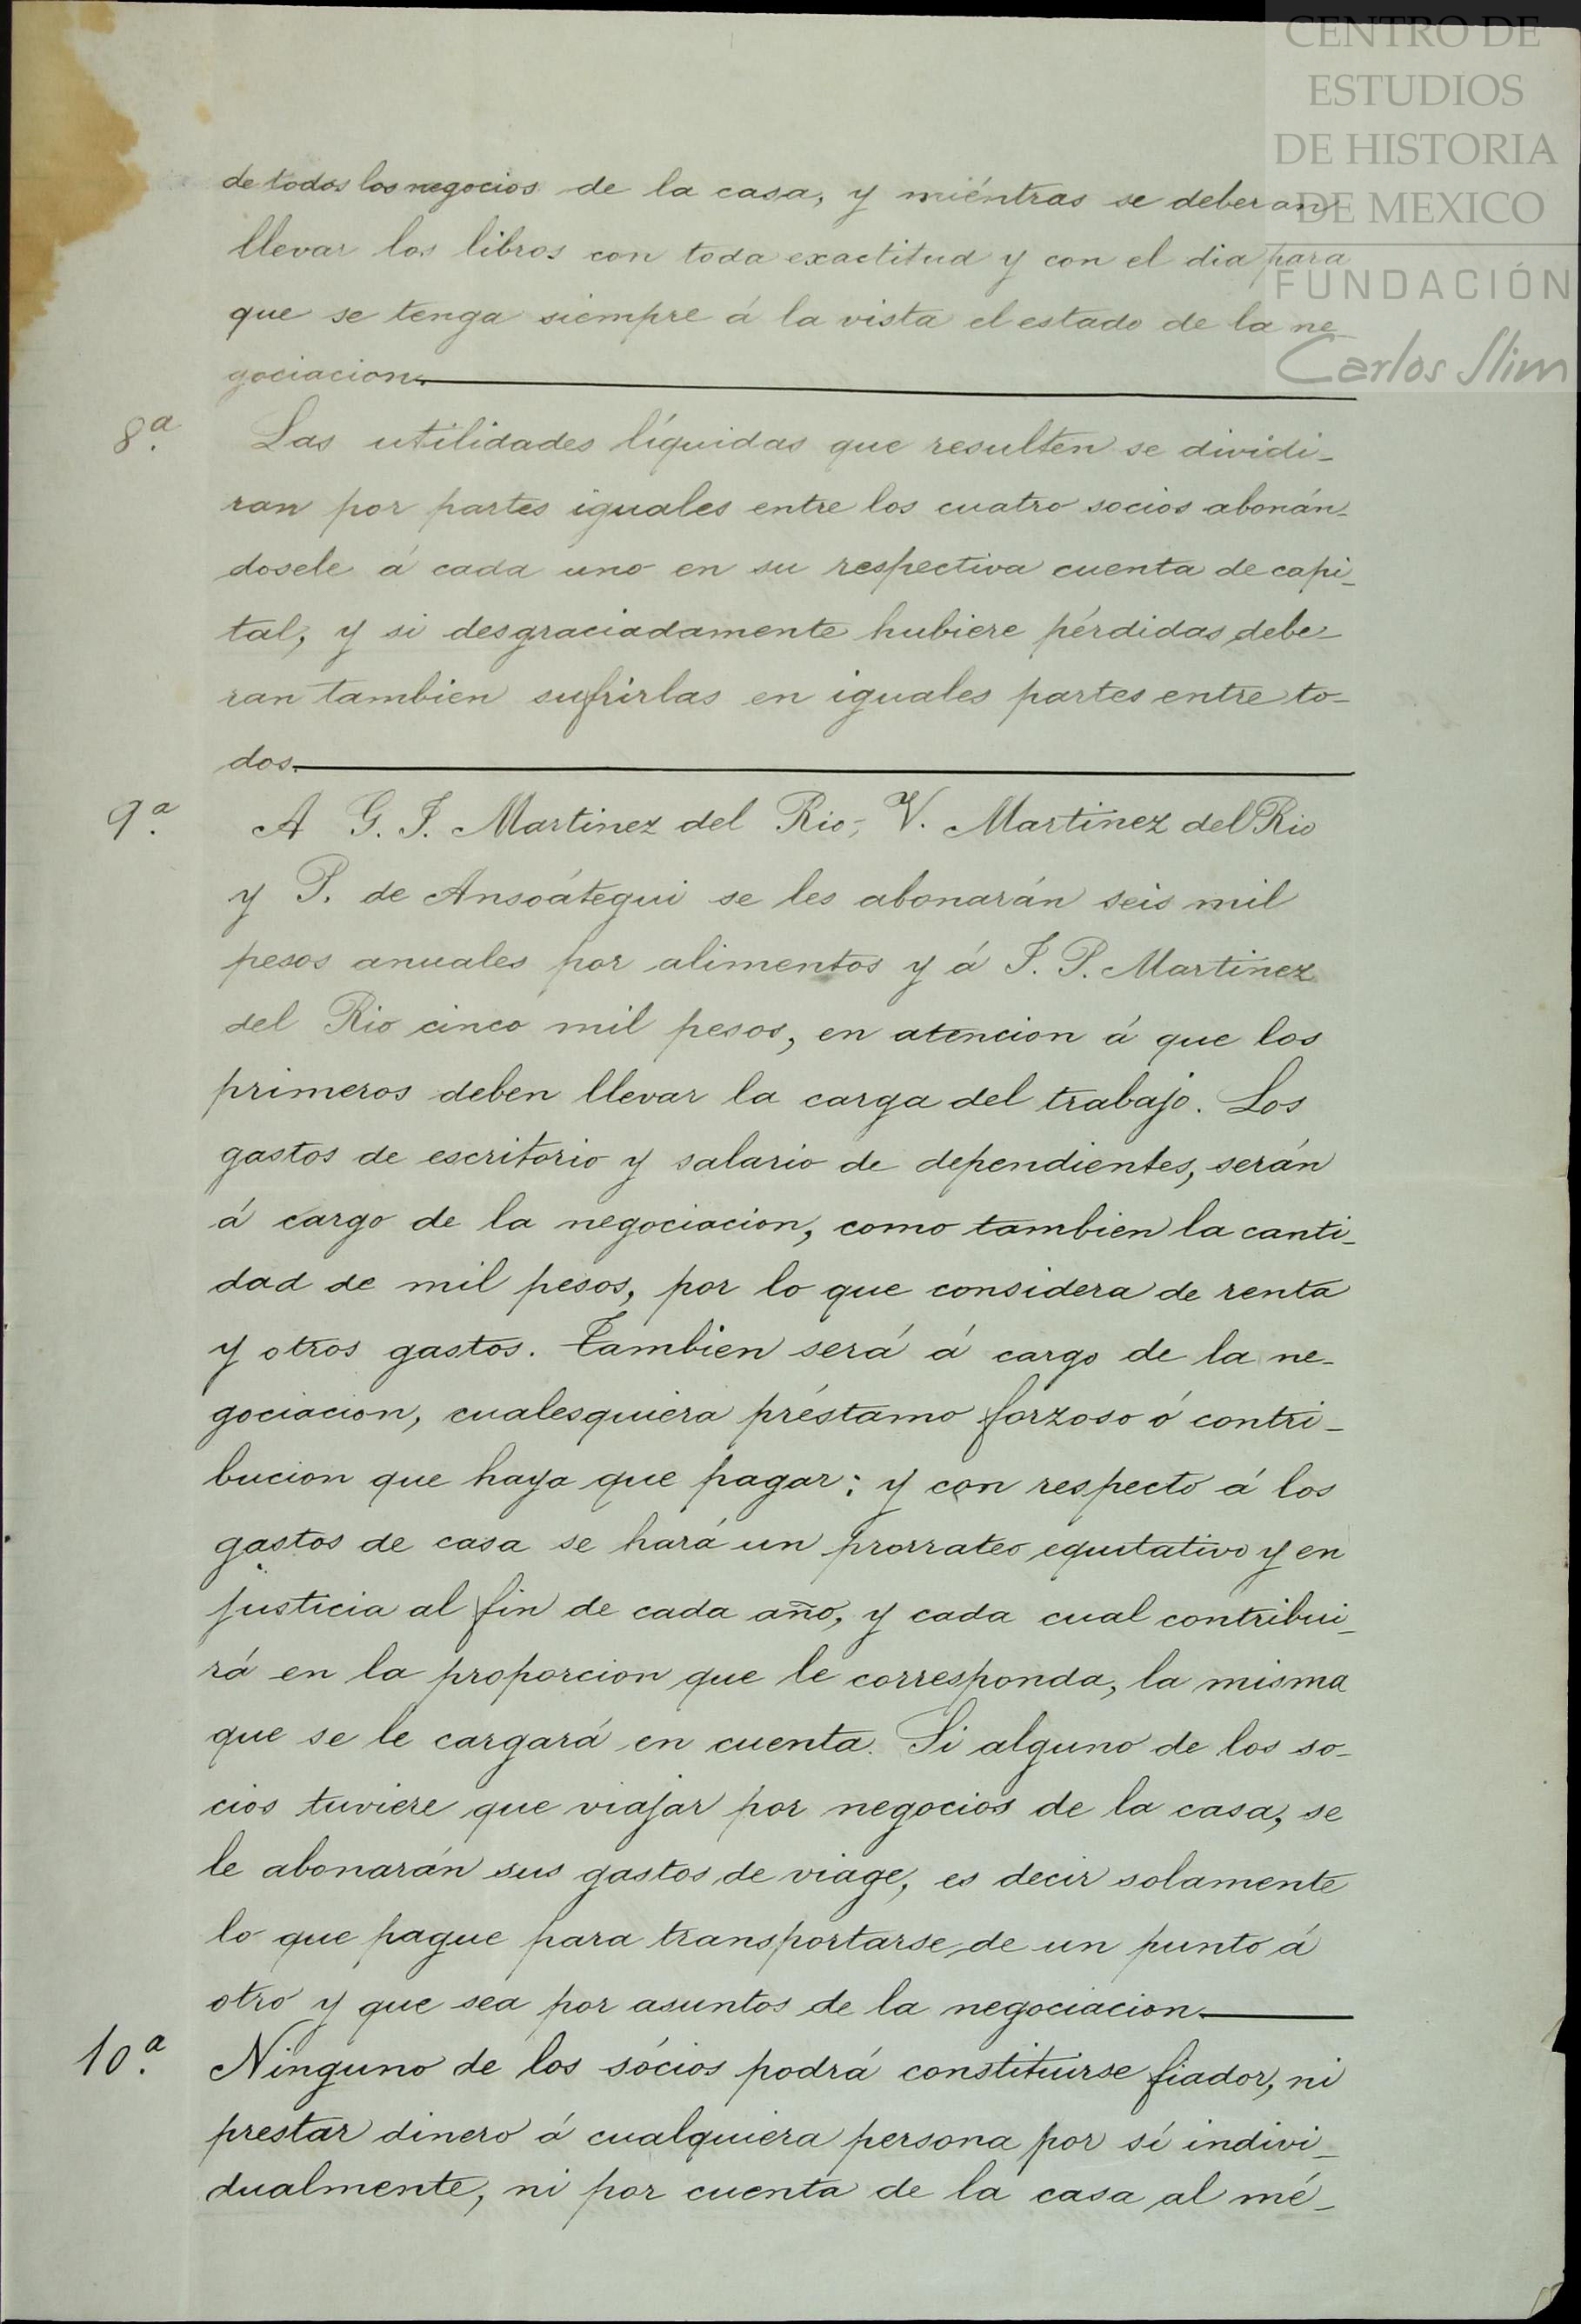 CENTRO DE
ESTUDIOS
DE HISTORIA
DE MEXICO
FUNDACIÓN
Carlos Slim
de todos los negocios de la casa, y miéntras se deberan
llevar los libros con toda exactitud y con el dia para
que se tenga siempre á la vista el estado de la ne
gociacion.
8.ª Las utilidades líquidas que resulten se dividi-
ran por partes iguales entre los cuatro socios abonán-
dosele á cada uno en su respectiva cuenta de capi-
tal, y si desgraciadamente hubiere pérdidas debe-
ran tambien sufrirlas en iguales partes entre to-
dos.
9.ª A G. J. Martinez del Rio, V. Martinez del Rio
y P. de Ansoátegui se les abonarán seis mil
pesos anuales por alimentos y á J. P. Martinez
del Rio cinco mil pesos, en atencion á que los
primeros deben llevar la carga del trabajo. Los
gastos de escritorio y salario de dependientes, serán
á cargo de la negociacion, como tambien la canti-
dad de mil pesos, por lo que considera de renta
y otros gastos. Tambien será á cargo de la ne-
gociacion, cualesquiera préstamo forzoso ó contri-
bucion que haya que pagar; y con respecto á los
gastos de casa se hará un prorrateo equitativo y en
justicia al fin de cada año, y cada cual contribui-
rá en la proporcion que le corresponda, la misma
que se le cargará en cuenta. Si alguno de los so-
cios tuviere que viajar por negocios de la casa, se
le abonarán sus gastos de viage, es decir solamente
lo que pague para transportarse de un punto á
otro y que sea por asuntos de la negociacion.
10.ª Ninguno de los sócios podrá constituirse fiador, ni
prestar dinero á cualquiera persona por sí indivi-
dualmente, ni por cuenta de la casa al mé-